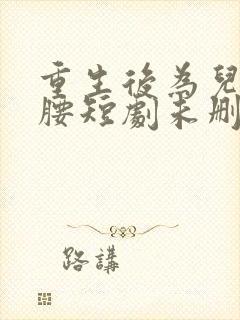 重生後為兒
腰短劇未刪
路講